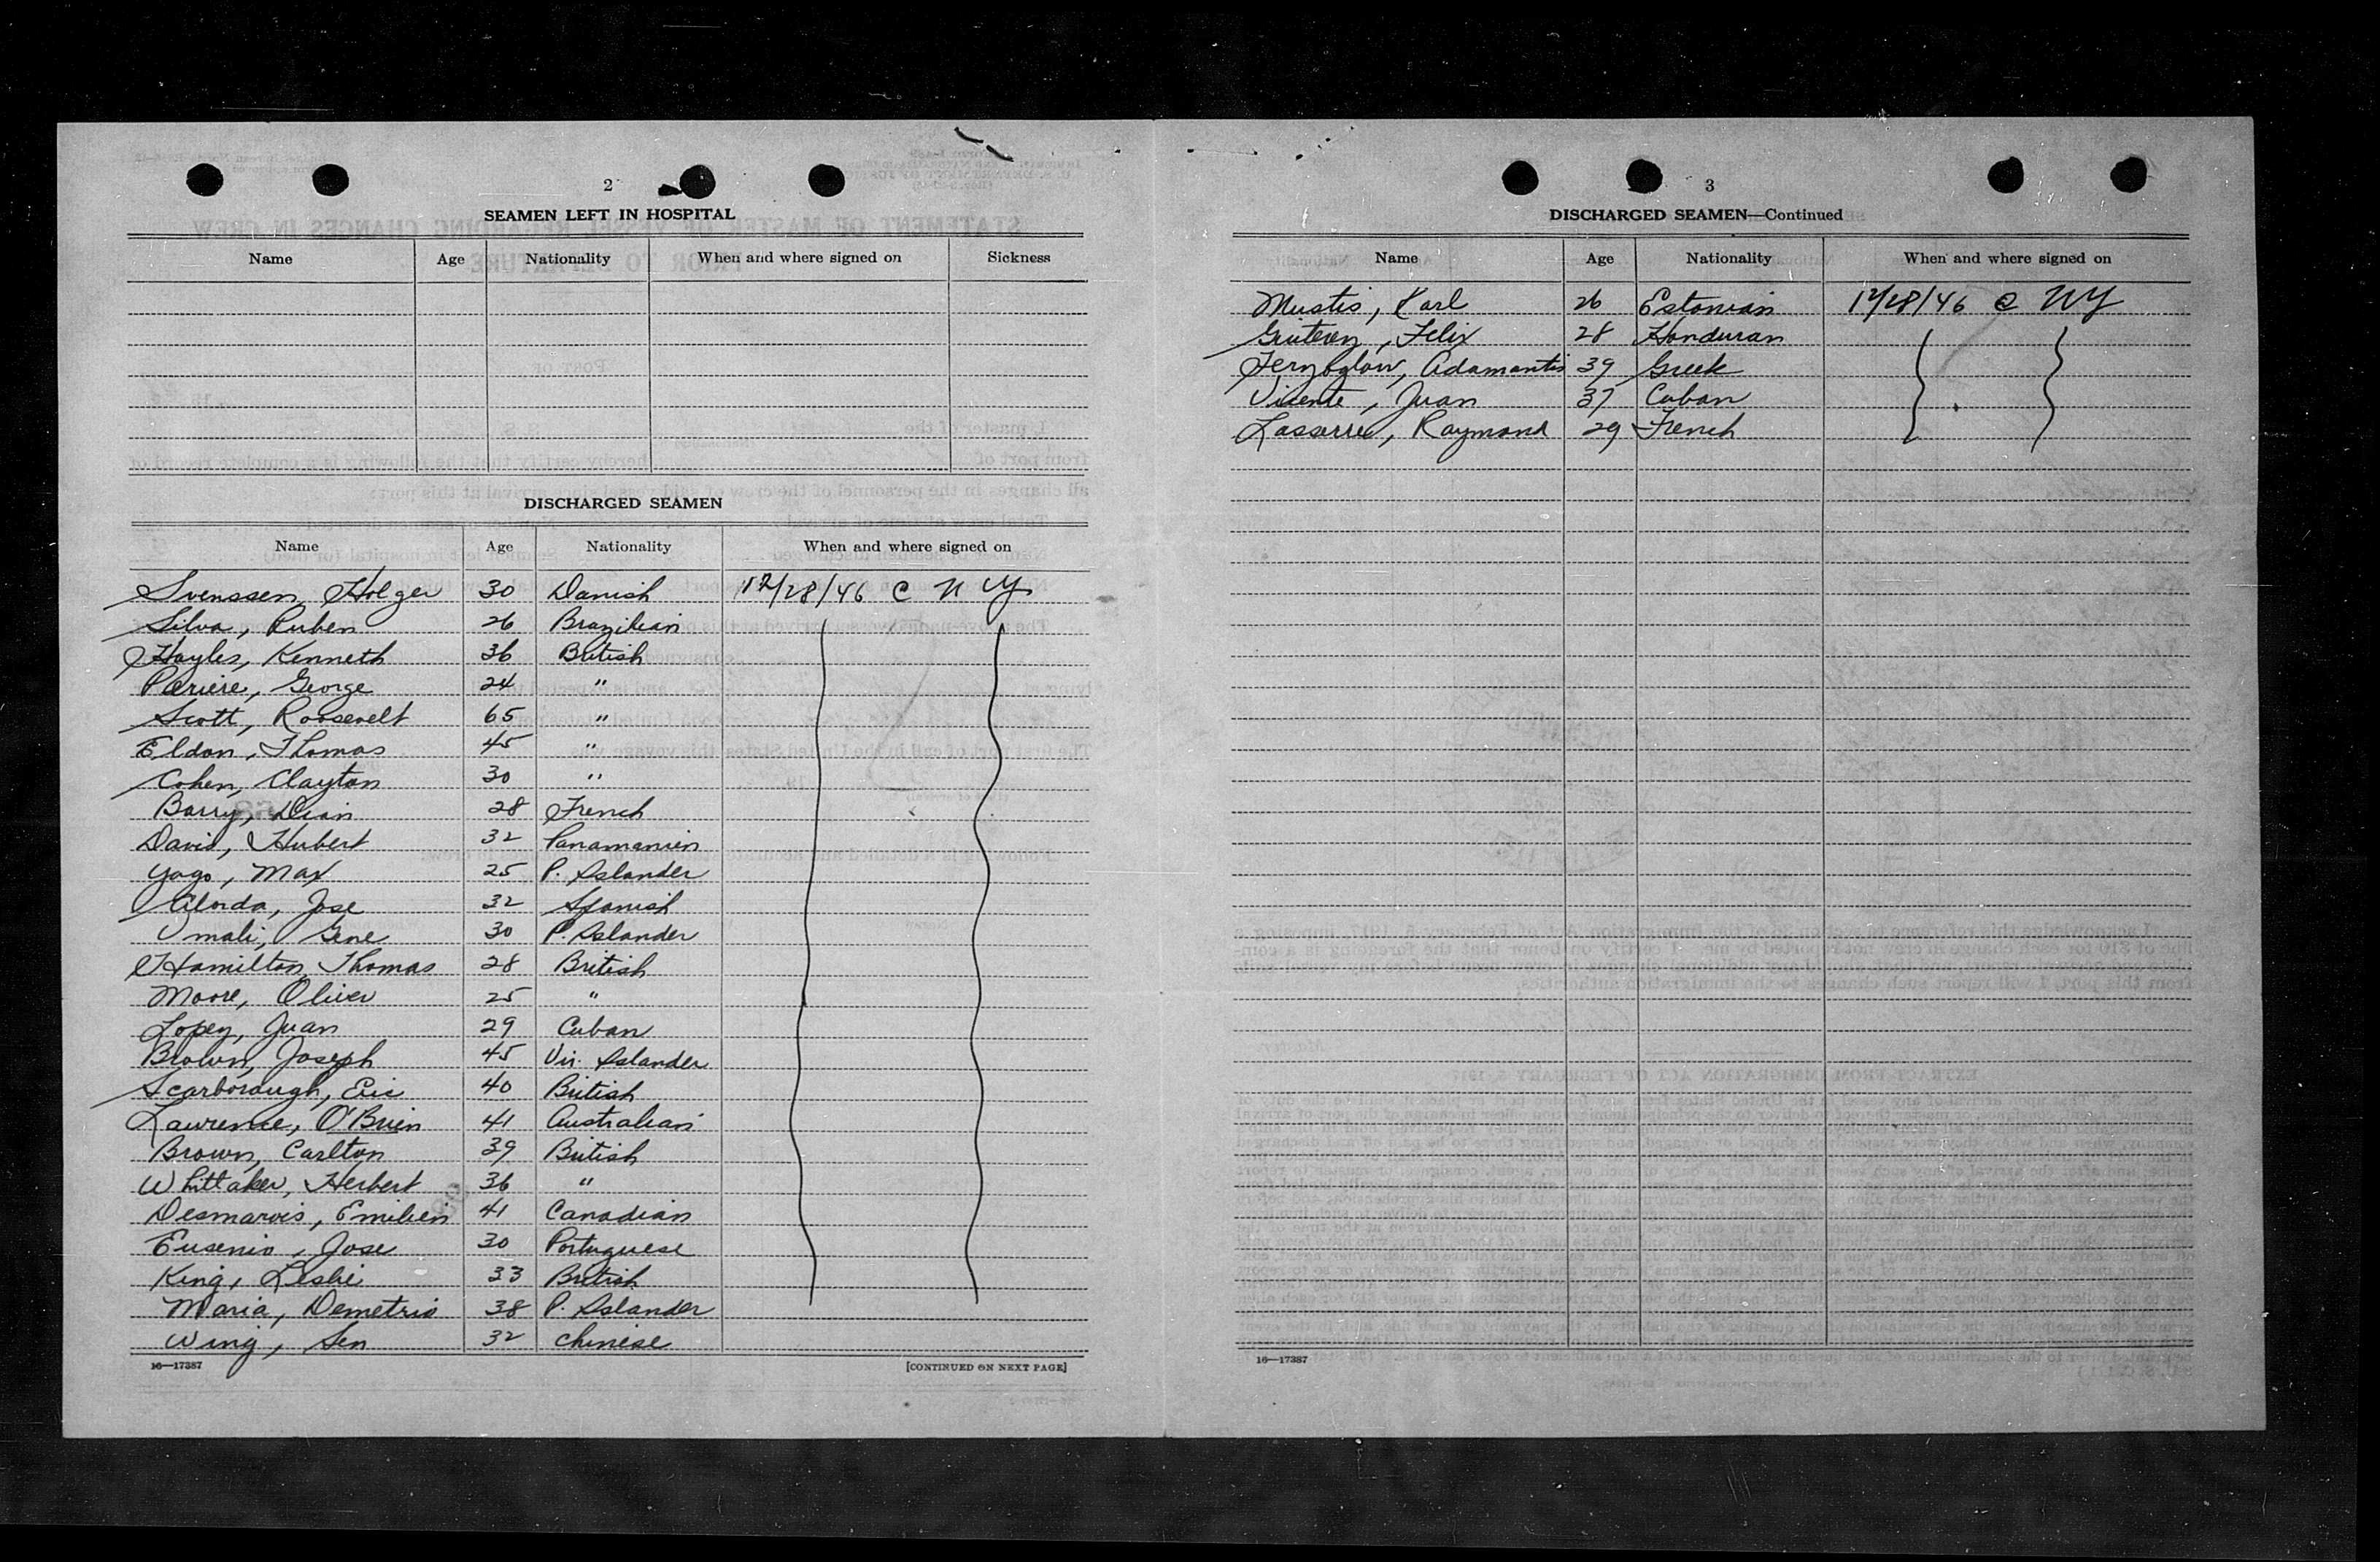 2
SEAMEN LEFT IN HOSPITAL
Name Age Nationality When and where signed on Sickness
DISCHARGED SEAMEN
Name Age Nationality When and where signed on
Svenssen, Holger 30 Danish 12/28/46 @ N Y
Silva, Ruben 26 Brazilian
Hayles, Kenneth 36 British
Pariere, George 24 "
Scott, Roosevelt 65 "
Eldon, Thomas 45 "
Cohen, Clayton 30 "
Barry, Dian 28 French
David, Hubert 32 Panamanien
Yago, Max 25 P. Islander
Alorda, Jose 32 Spanish
Umali, Gene 30 P. Islander
Hamilton, Thomas 28 British
Moore, Oliver 25 "
Lopez, Juan 29 Cuban
Brown, Joseph 45 Vir. Islander
Scarborough, Eric 40 British
Lawrence, O'Brien 41 Australian
Brown, Carlton 39 British
Whittaker, Herbert 36 "
Desmarois, Emilien 41 Canadian
Eusenio, Jose 30 Portuguese
King, Leslie 33 British
Maria, Demetrio 38 P. Islander
Wing, Sen 32 Chinese
16—17387 [CONTINUED ON NEXT PAGE]
3
DISCHARGED SEAMEN—Continued
Name Age Nationality When and where signed on
Mustis, Karl 26 Estonian 12/28/46 @ NY
Felix 28 Honduran
Adamantis 39 Greek
Vicente, Juan 37 Cuban
Lasserre, Raymond 29 French
16—17387